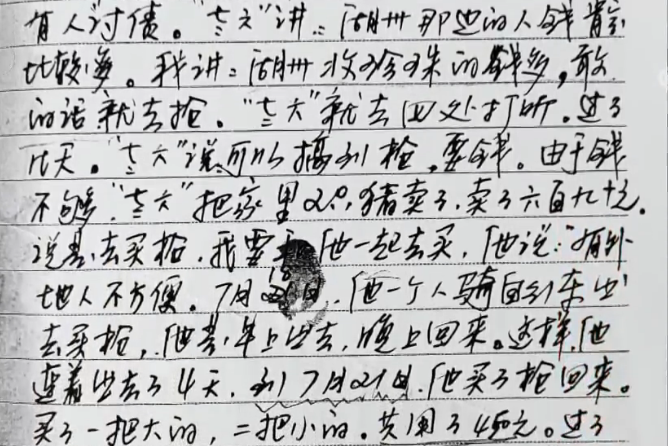 有人讨债。“士六”讲：湖州那边的人钱肯定
比较多。我讲：湖州收珍珠的钱多，敢
的话就去抢。“士六”就去四处打听。过了
几天。“士六”说可以搞到枪，要钱。由于钱
不够“士六”把家里20只猪卖了，卖了六百九十元。
说是去买枪，我要和他一起去买，他说：有外
地人不方便。7月18日，他一个人骑自行车出
去买枪，他是早上出去，晚上回来。这样，他
连着出去了4天，到7月21日，他买了枪回来。
买了一把大的，二把小的。共用了450元。过了